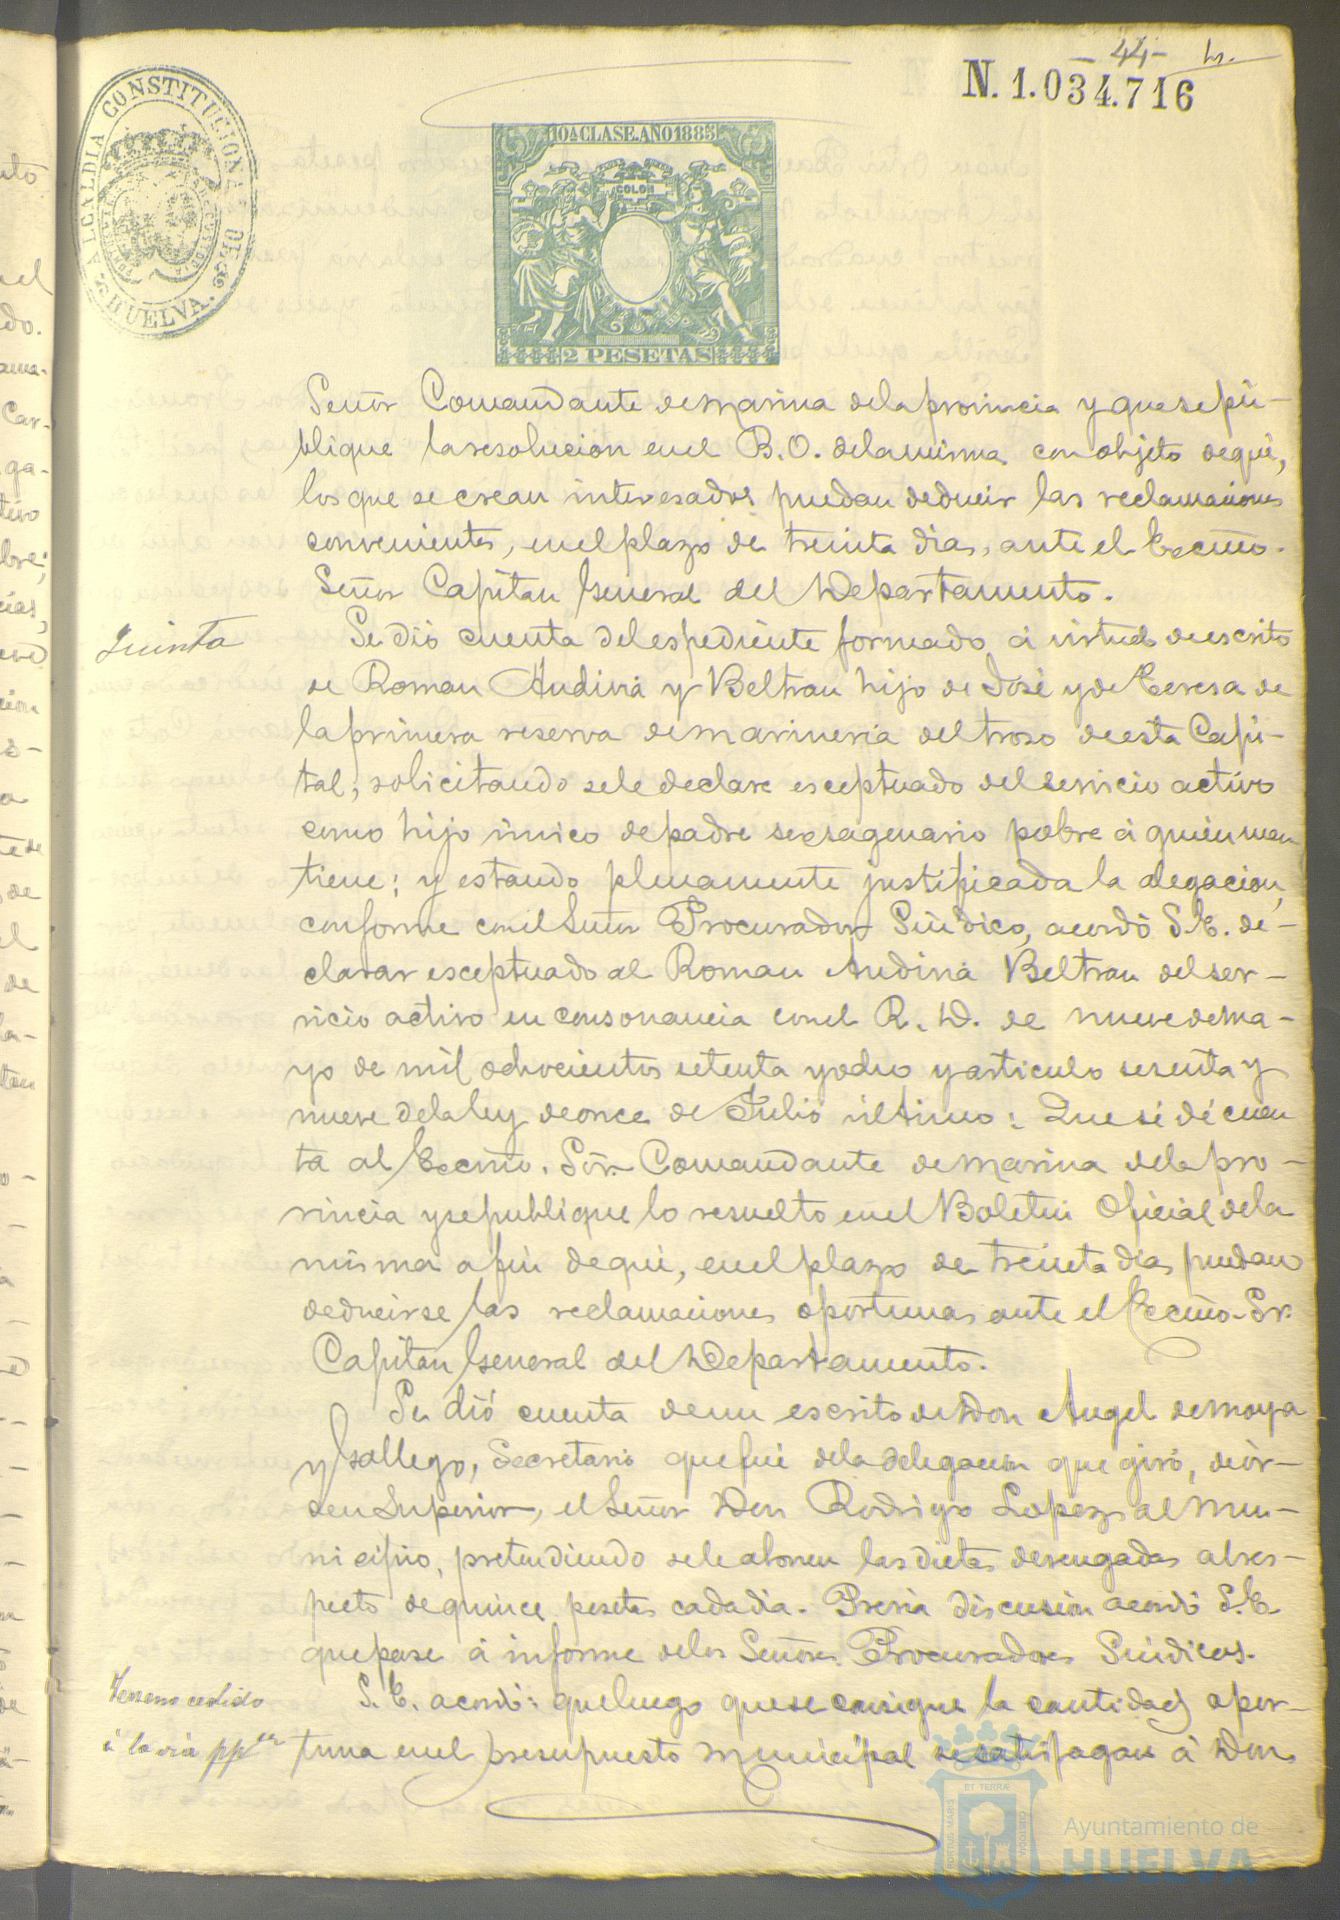 -44-
N. 1.034.716
ALCALDIA CONSTITUCIONAL DE HUELVA.
10ª CLASE. AÑO 1885
COLON
2 PESETAS
Señor Comandante de marina de la provincia y que se pu-
blique la resolucion en el B. O. de la misma con objeto de que,
los que se crean interesados puedan deducir las reclamaciones
convenientes, en el plazo de treinta dias, ante el Excmo.
Señor Capitan General del Departamento.
Quinta
Se dió cuenta del espediente formado á virtud de escrito
de Roman Andivia y Beltran hijo de José y de Teresa de
la primera reserva de marineria del trozo de esta Capi-
tal, solicitando se le declare esceptuado del servicio activo
como hijo único de padre sexsagenario pobre á quien man
tiene; y estando plenamente justificada la alegacion,
conforme con el Señor Procurador Síndico, acordó S. E. de-
clarar esceptuado al Roman Andivia Beltran del ser-
vicio activo en consonancia con el R. D. de nueve de ma-
yo de mil ochocientos setenta y ocho y articulo sesenta y
nueve de la ley de once de Julio último: Que se dé cuen
ta al Excmo. Sor. Comandante de marina de la pro-
vincia y se publique lo resuelto en el Boletin Oficial de la
misma a fin de que, en el plazo de treinta dias puedan
deducirse las reclamaciones oportunas ante el Excmo. Sr.
Capitan General del Departamento.
Se dió cuenta de un escrito de Don Angel de Moya
y Gallego, Secretario que fué de la delegacion que giró, de ór-
den Superior, el Señor Don Rodrigo Lopez al Mu-
nicipio, pretendiendo se le abonen las dietas devengadas al res-
pecto de quince pesetas cada dia. Previa discusion acordó S. E.
que pase á informe de los Señores Procuradores Síndicos.
Terreno cedido
á la via ppca
S. E. acordó: que luego que se consigne la cantidad opor-
tuna en el presupuesto Municipal se satisfagan á Don
ET TERRÆ
PORTUS MARIS
CUSTODIA
Ayuntamiento de
HUELVA